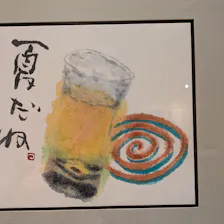 夏だね